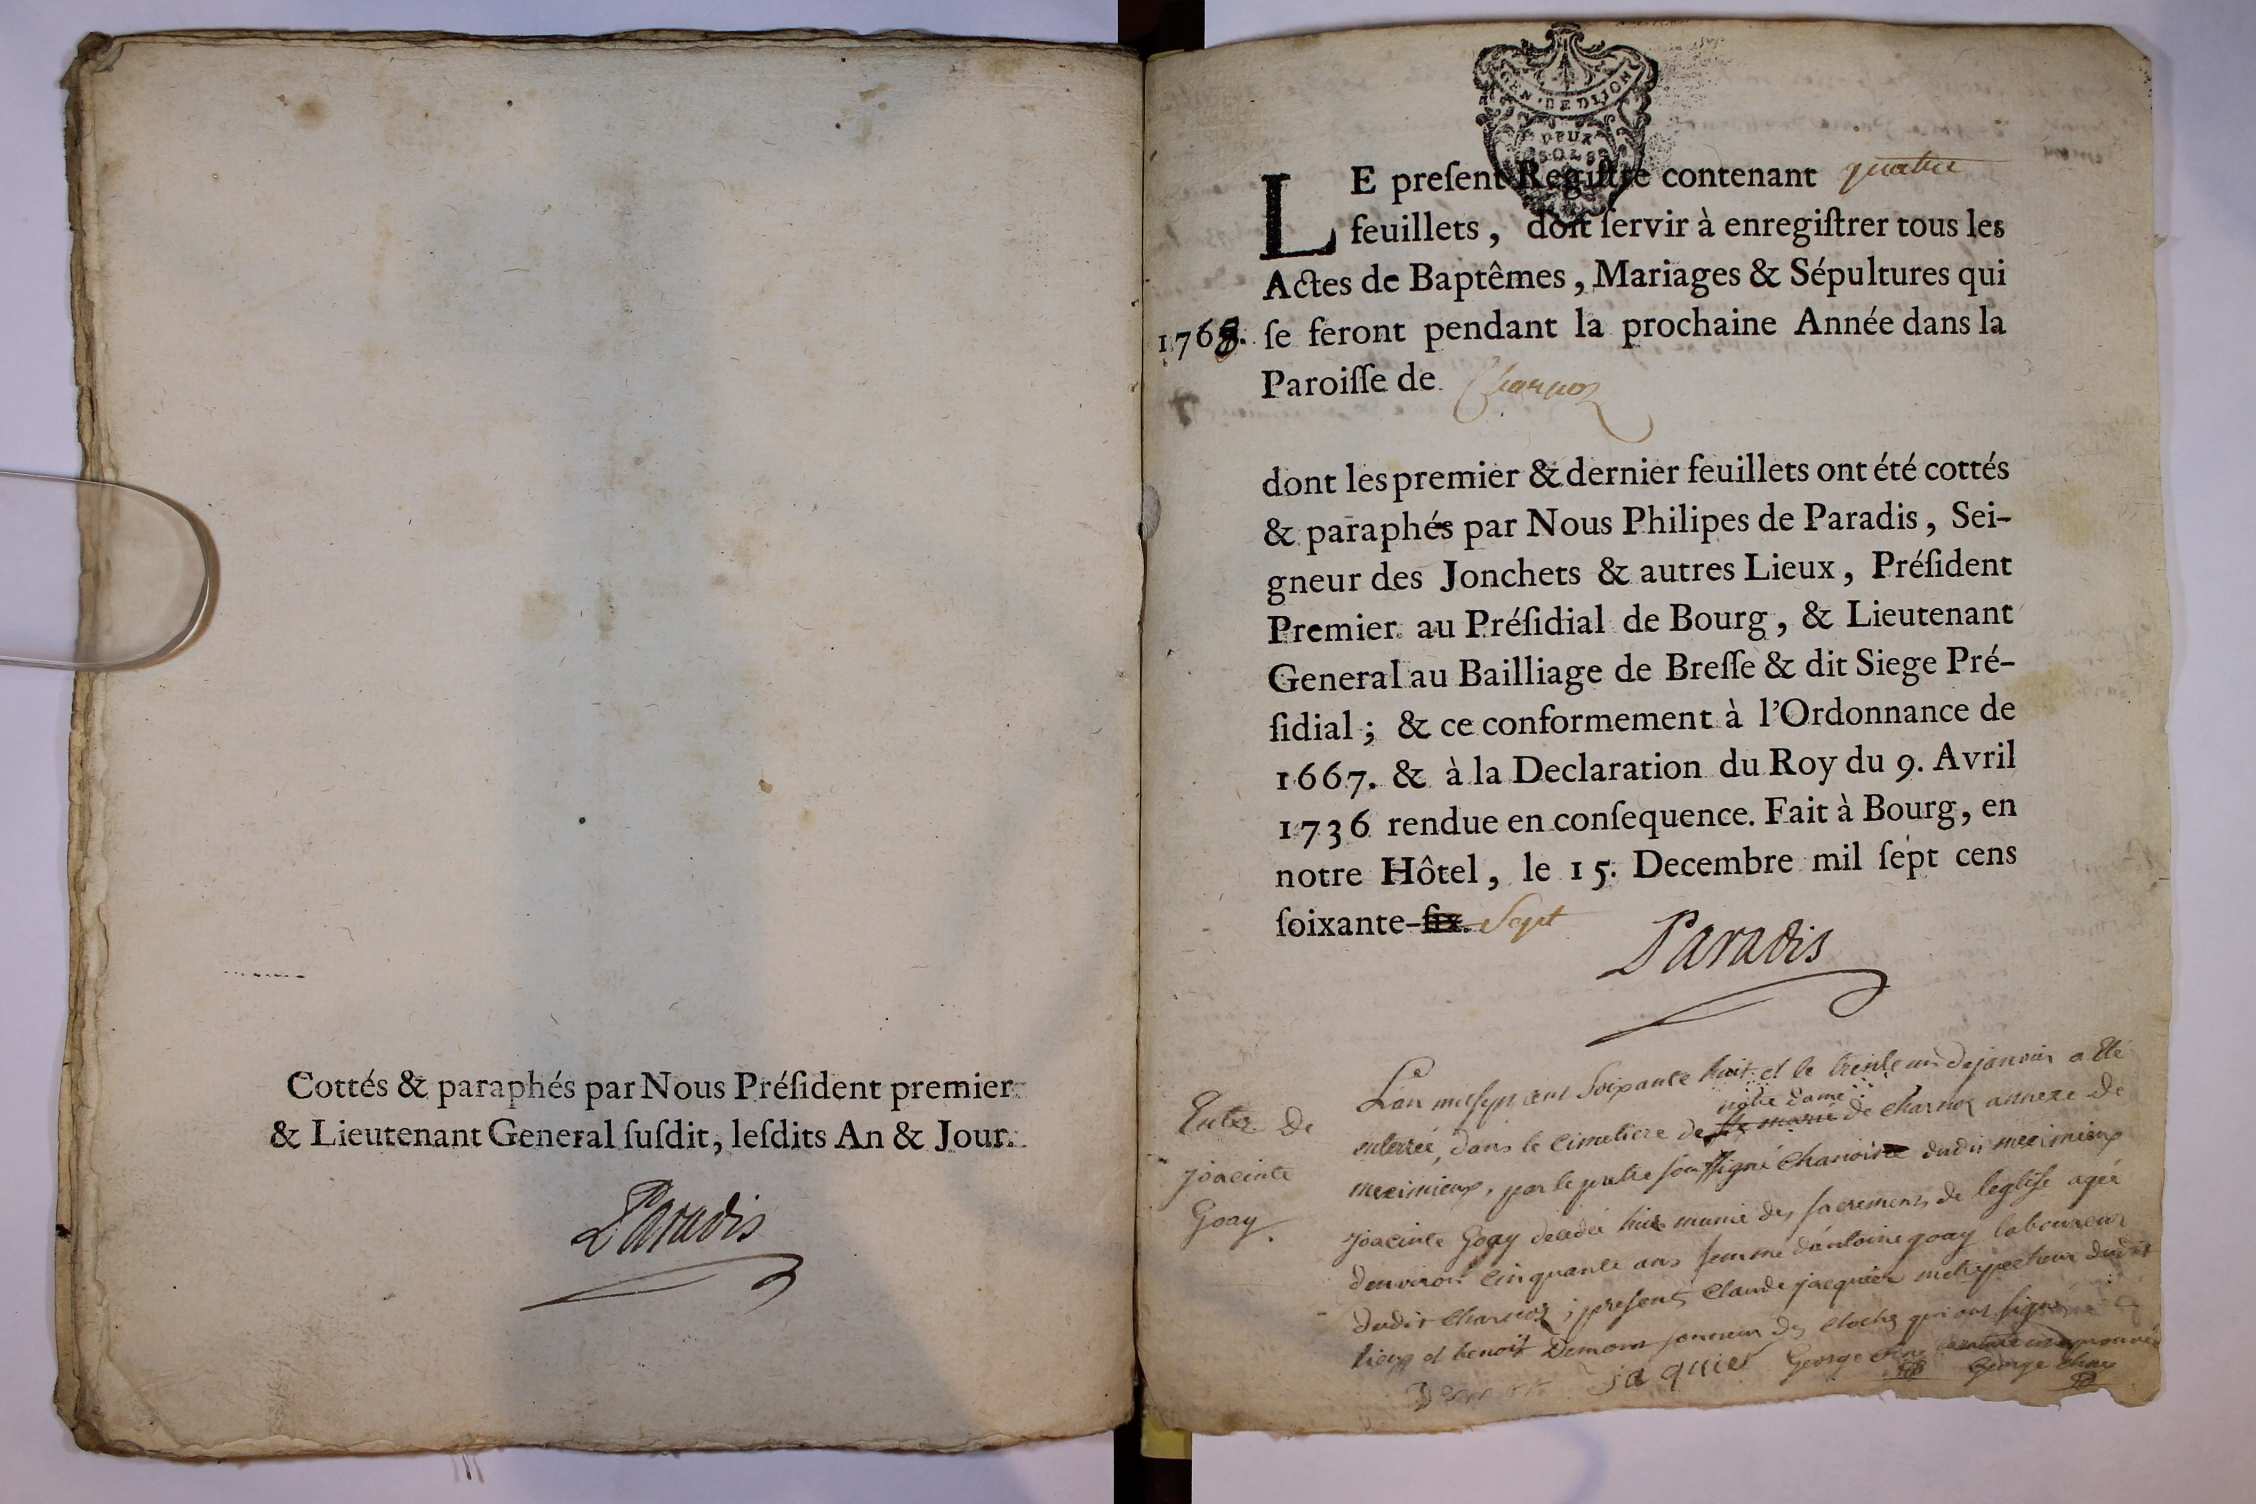 Cottés & paraphés par Nous Préſident premier
& Lieutenant General ſuſdit, leſdits An & Jour.
Paradis
GEN. DE DIJON
DEUX
SOLS
LE preſent Regiſtre contenant quatre
feuillets, doit ſervir à enregiſtrer tous les
Actes de Baptêmes, Mariages & Sépultures qui
1768. ſe feront pendant la prochaine Année dans la
Paroiſſe de Charnoz
dont les premier & dernier feuillets ont été cottés
& paraphés par Nous Philipes de Paradis, Sei-
gneur des Jonchets & autres Lieux, Préſident
Premier au Préſidial de Bourg, & Lieutenant
General au Bailliage de Breſſe & dit Siege Pré-
ſidial; & ce conformement à l'Ordonnance de
1667. & à la Declaration du Roy du 9. Avril
1736 rendue en conſequence. Fait à Bourg, en
notre Hôtel, le 15. Decembre mil ſept cens
ſoixante-ſix. Sept
Paradis
Enter. De
joacinte
Goay.
L'an mil sept cent Soixante huit et le trente un de janvier a été
notre dame
enterrée, dans le cimetiere de ste marie de charnoz annexe de
meximieux, par le pretre soussigné chanoine dudit meximieux
joacinte Goay décedée hier munie des sacrements de leglise agée
denviron cinquante ans femme d'antoine goay laboureur
dudit charnoz; presents claude jacquier dudit
lieux et benoit Demont sonneur des cloches qui ont signé
jaquier George
George